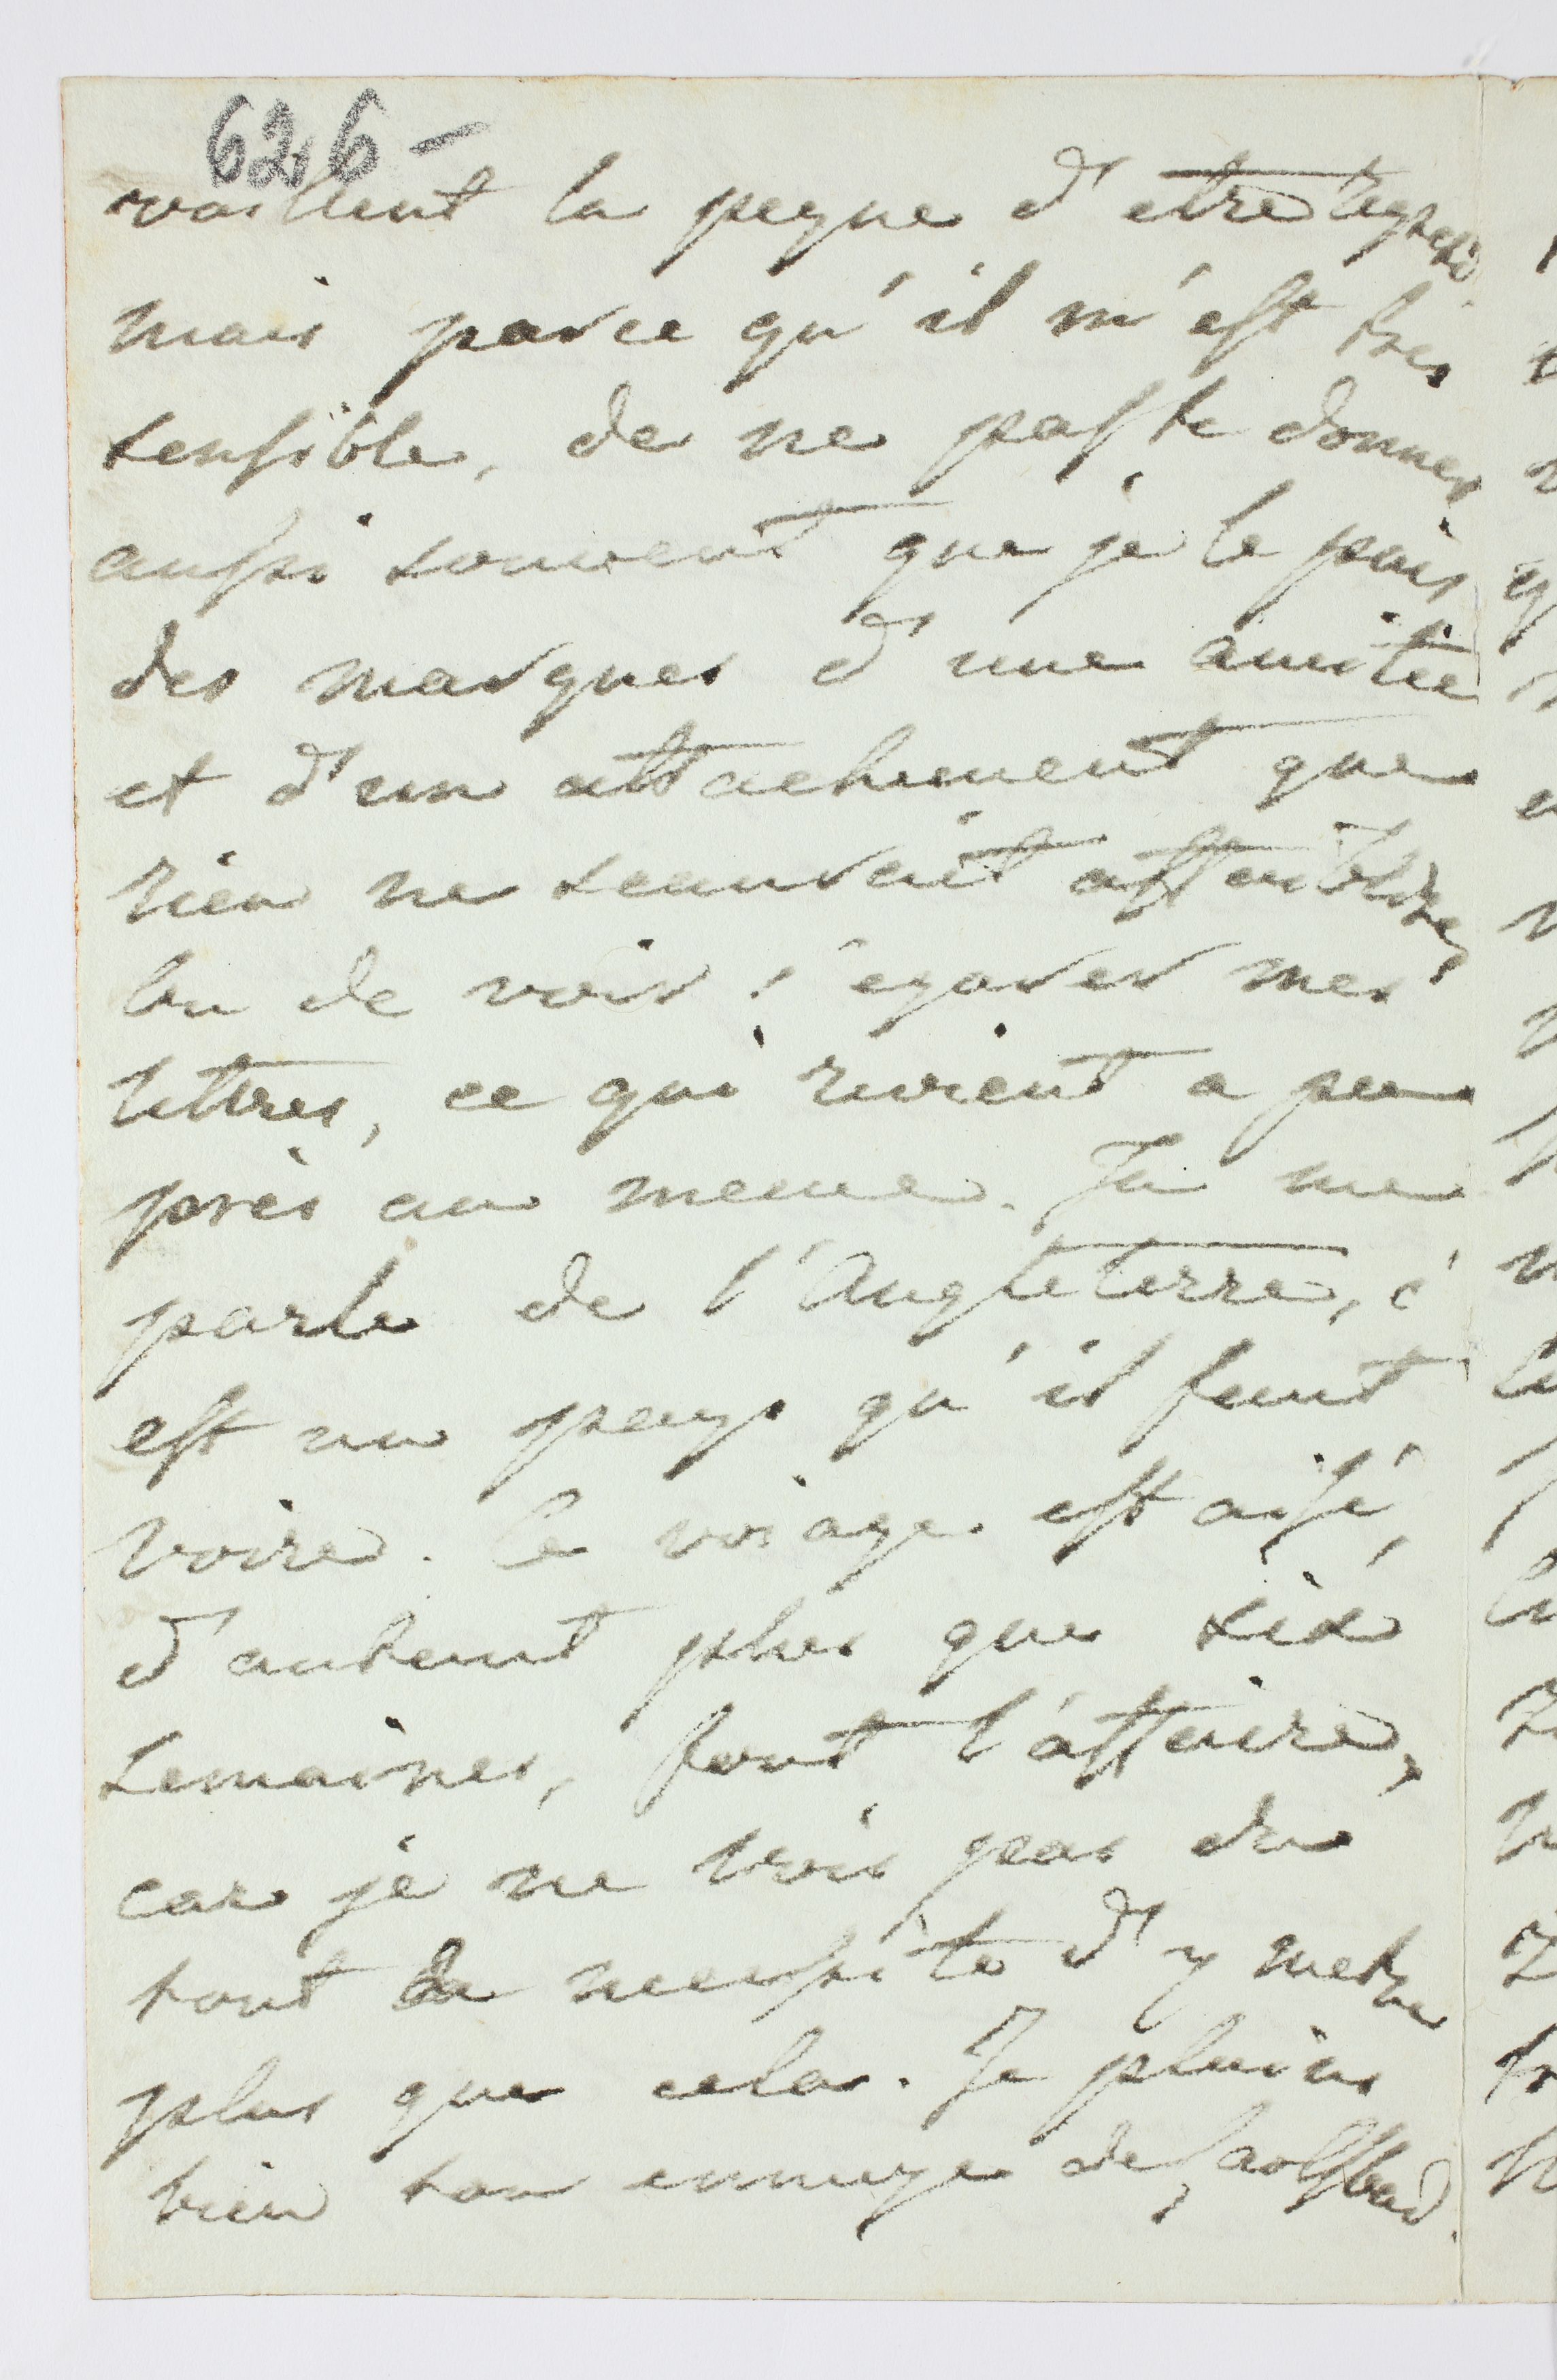 626-
vaillent la peyne d'etre regreté
mais parce qu'il m'est tres
sensible, de ne pas te donner
aussi souvent que je le puis
des marques d'une amitié
et d'un attachement que
rien ne sauroit affaiblire,
ou de voir s'egarer mes
lettres, ce qui revient a peu
près au meme. Tu me
parle de l'Angleterre, c'
est un pays qu'il faut
voire. Ce voiage est aisé,
d'autant plus que six
semaines, font l'affaire,
car je ne vois pas du
tout la necessité d'y metre
plus que cela. Je plains
bien ton ennuye de